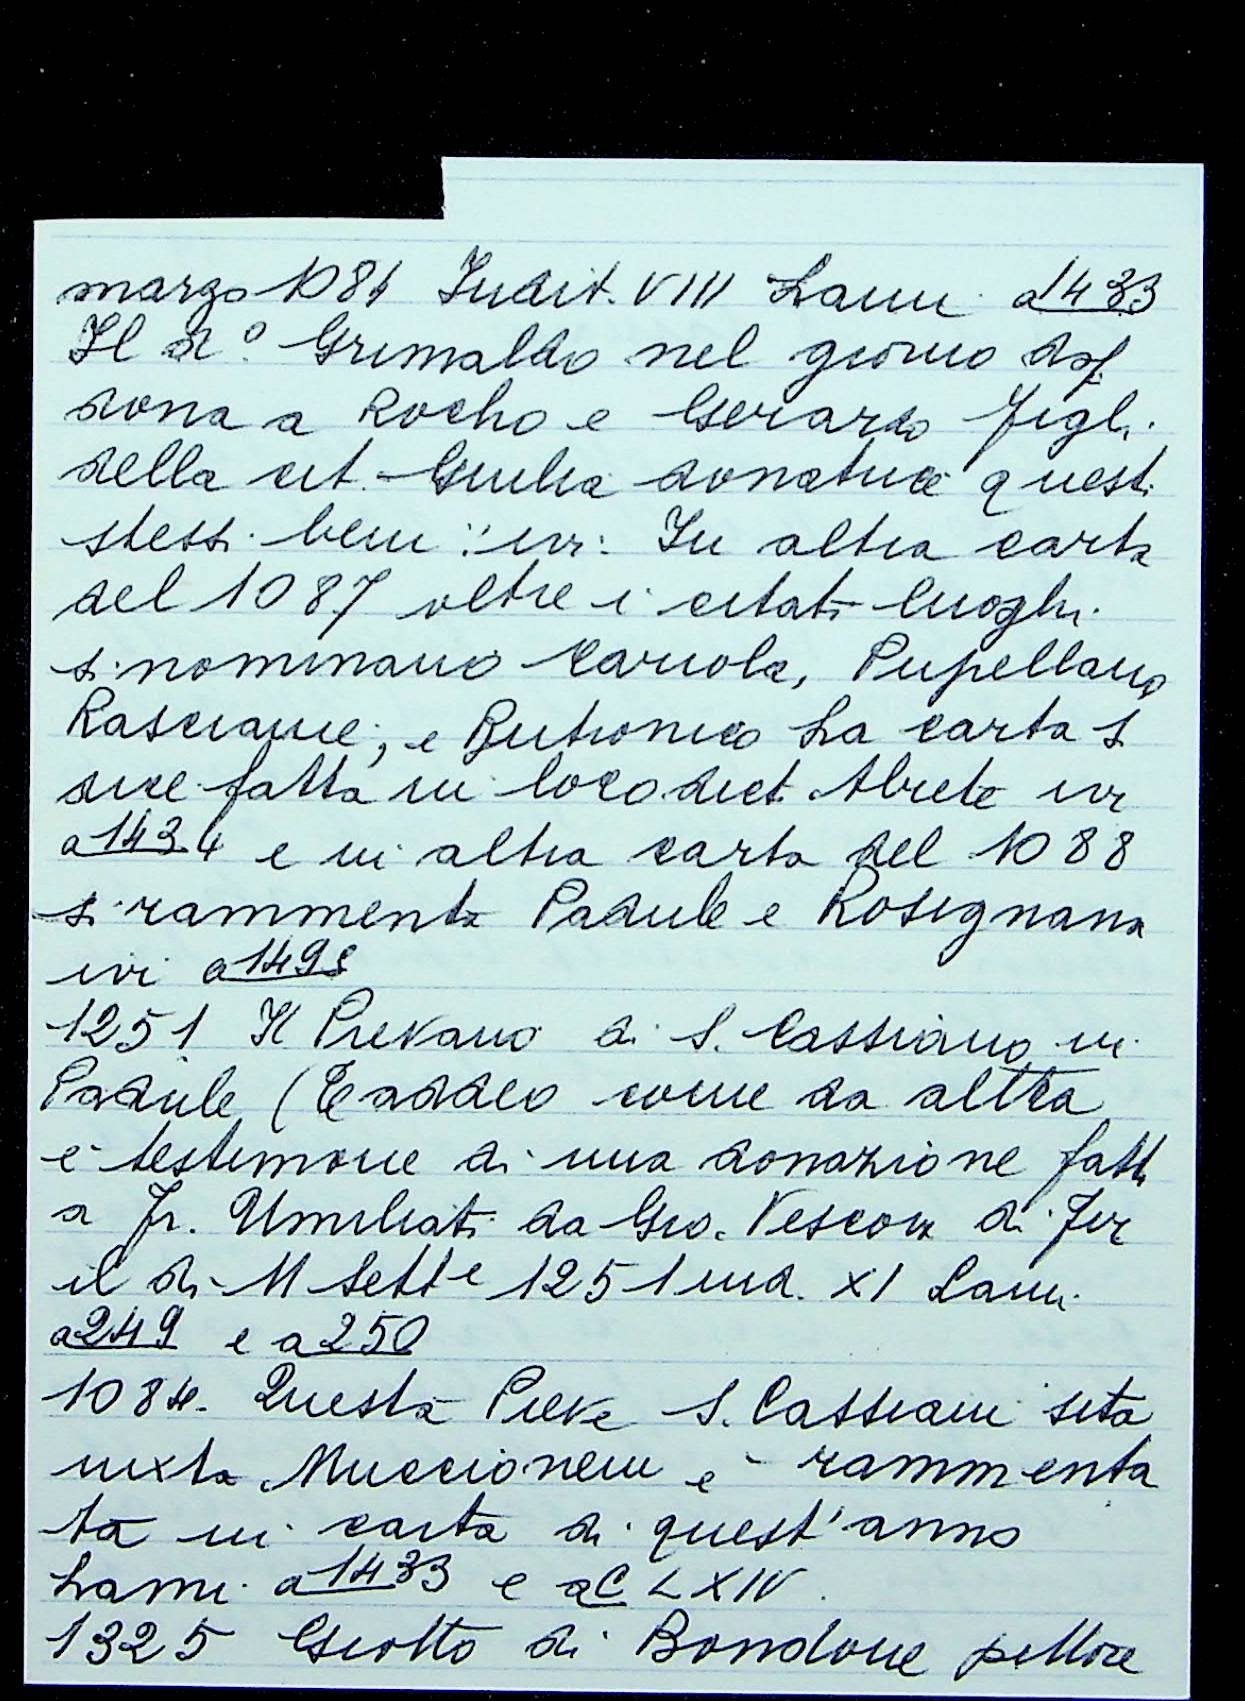 marzo 1084 Indit. VIII Lami a 1433
Il d.º Grimaldo nel giorno dof.
dona a Rocho e Gerardo figli
della cit. Giulia donatrice questi
stessi beni: ivi: In altra carta
del 1087 oltre i citati luoghi
si nominano Cariola, Pupellano
Rasciane, e Butronico La carta si
dice fatta in loco dict. Abrete ivi
a 1434 e in altra carta del 1088
si rammenta Padule e Rosignana
ivi a
1251 Il Pievano di S. Cassiano in
Padule (Taddeo come da altra
è testimone di una donazione fatta
a Fr. Umiliati da Gio. Vescov di Fir
il dì 11 Sett.e 1251 ind. XI Lami
a 249 e a 250
1084. Questa Pieve S. Cassiani sita
iuxta Muccionem è rammenta
ta in carta di quest'anno
Lami a 1433 e a C LXIV.
1325 Giotto di Bondone pittore